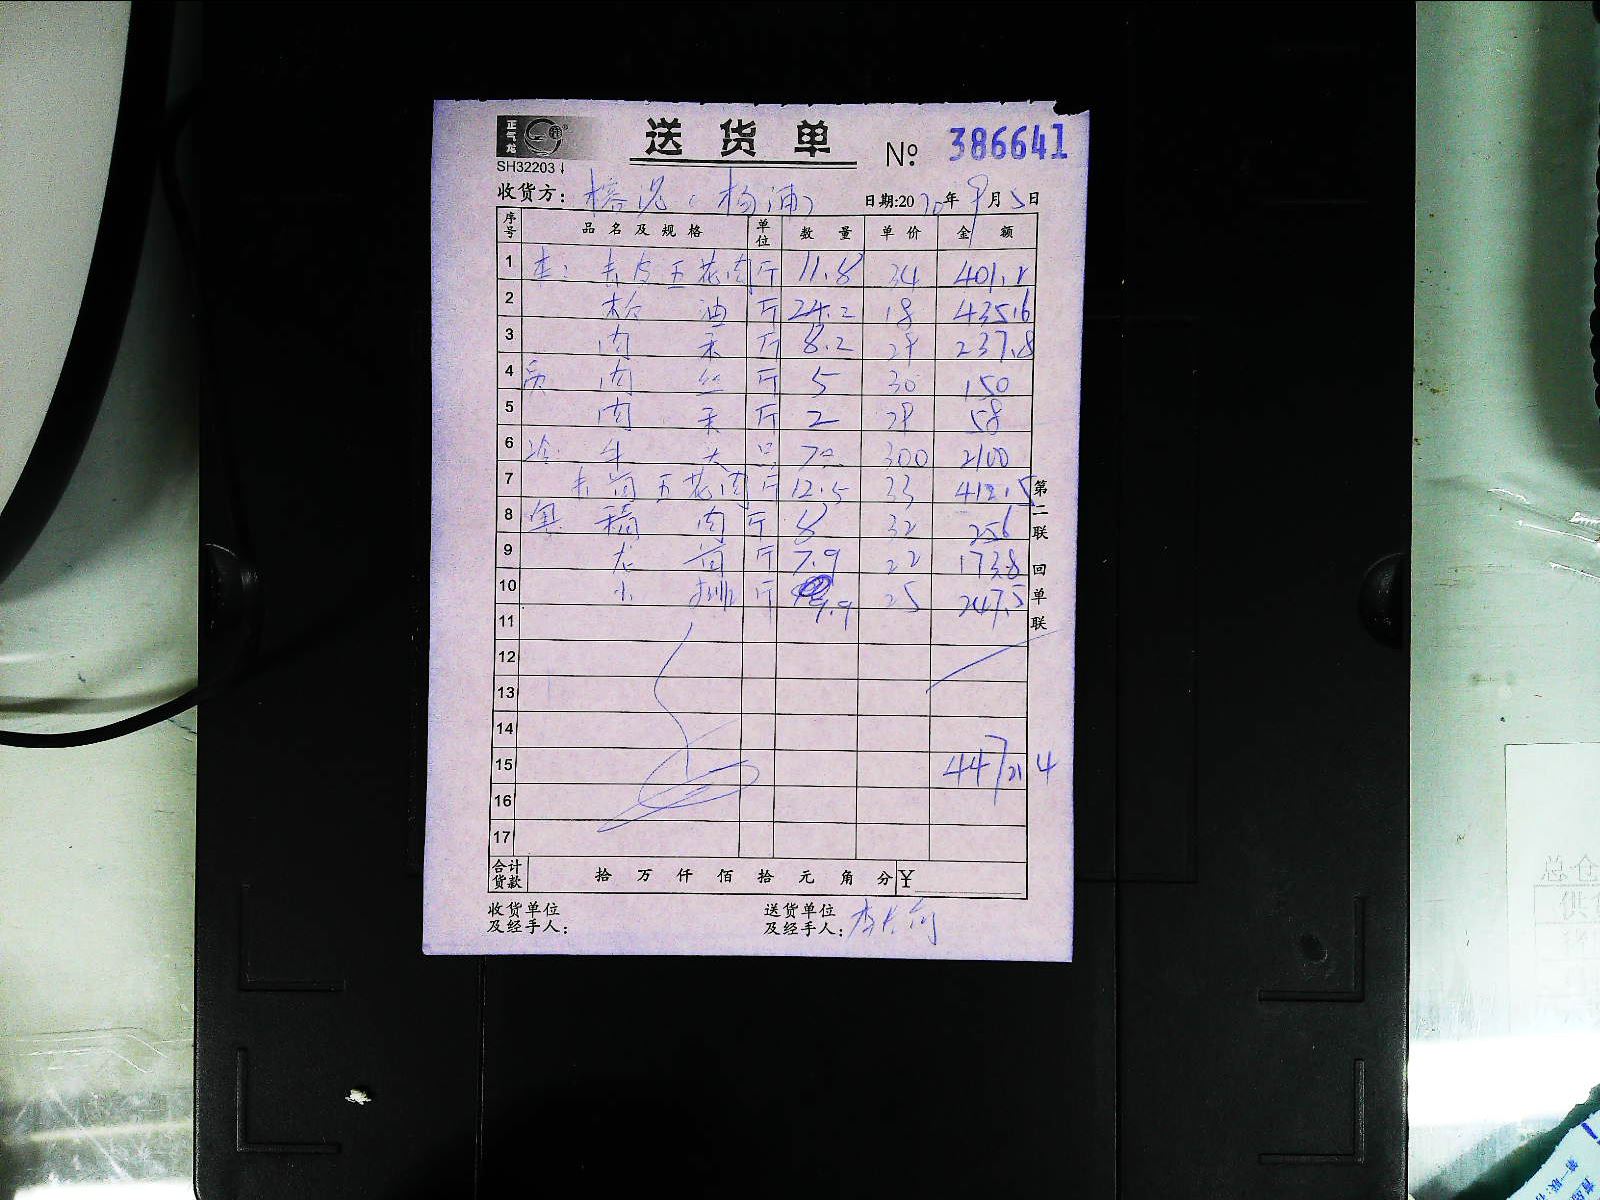 正气龙
SH32203
送货单 № 386641
收货方: (杨浦) 日期:2020年9月5日
序号 品名及规格 单位 数量 单价 金额
1 去皮五花肉 斤 11.8 34 401.2
2 油 斤 24.2 18 435.6
3 肉末 斤 8.2 29 237.8
4 肉丝 斤 5 30 150
5 肉末 斤 2 29 58
6 300 2100
7 五花肉 斤 12.5 33 412.5
8 肉 斤 8 32 256
9 斤 7.9 22 173.8
10 小排 斤 9.9 25 247.5
11
12
13
14
15 4472.4
16
17
合计货款 拾万仟佰拾元角分 ¥
收货单位及经手人:
送货单位及经手人:
第二联 回单联
总仓